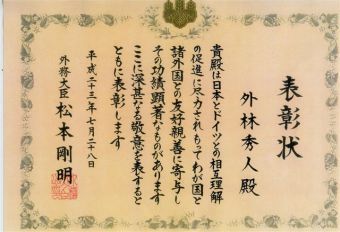 表彰状
外林秀人殿
貴殿は日本とドイツとの相互理解
の促進に尽力されもってわが国と
諸外国との友好親善に寄与し
その功績顕著なものがあります
ここに深甚なる敬意を表すると
ともに表彰します
平成二十三年七月二十八日
外務大臣 松本剛明